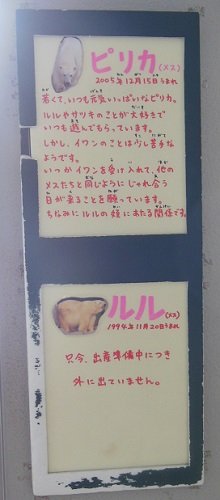 ピリカ(メス)
2005年12月15日うまれ
若くて、いつも元気いっぱいなピリカ。
ルルやサツキのことが大好きで
いつも遊んでもらっています。
しかし、イワンのことは少し苦手な
ようです。
いつかイワンを受け入れて、他の
メスたちと同じようにじゃれ合う
日が来ることを願っています。
ちなみにルルの姪にあたる関係です。
ルル(メス)
1994年11月20日うまれ
只今、出産準備中につき
外に出ていません。